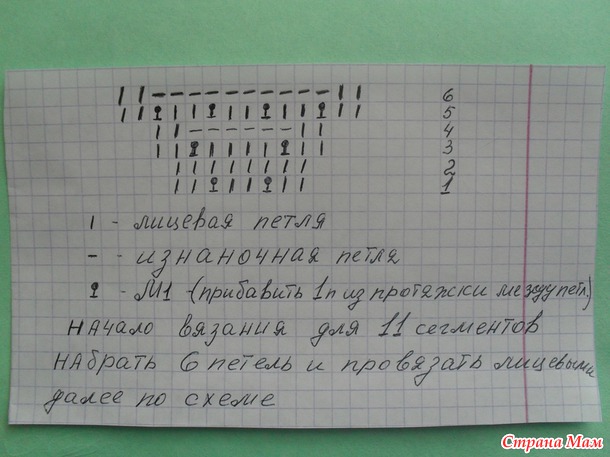 I I - - - - - - - - - - I I 6
I I Ω I I Ω I I Ω I I Ω I I 5
I I - - - - - - I I 4
I I Ω I I I I Ω I I 3
I I I I I I I I 2
I I Ω I I Ω I I 1
I - лицевая петля
- - изнаночная петля
Ω - М1 - (прибавить 1п из протяжки между петл)
начало вязания для 11 сегментов
набрать 6 петель и провязать лицевыми
далее по схеме
Страна Мам